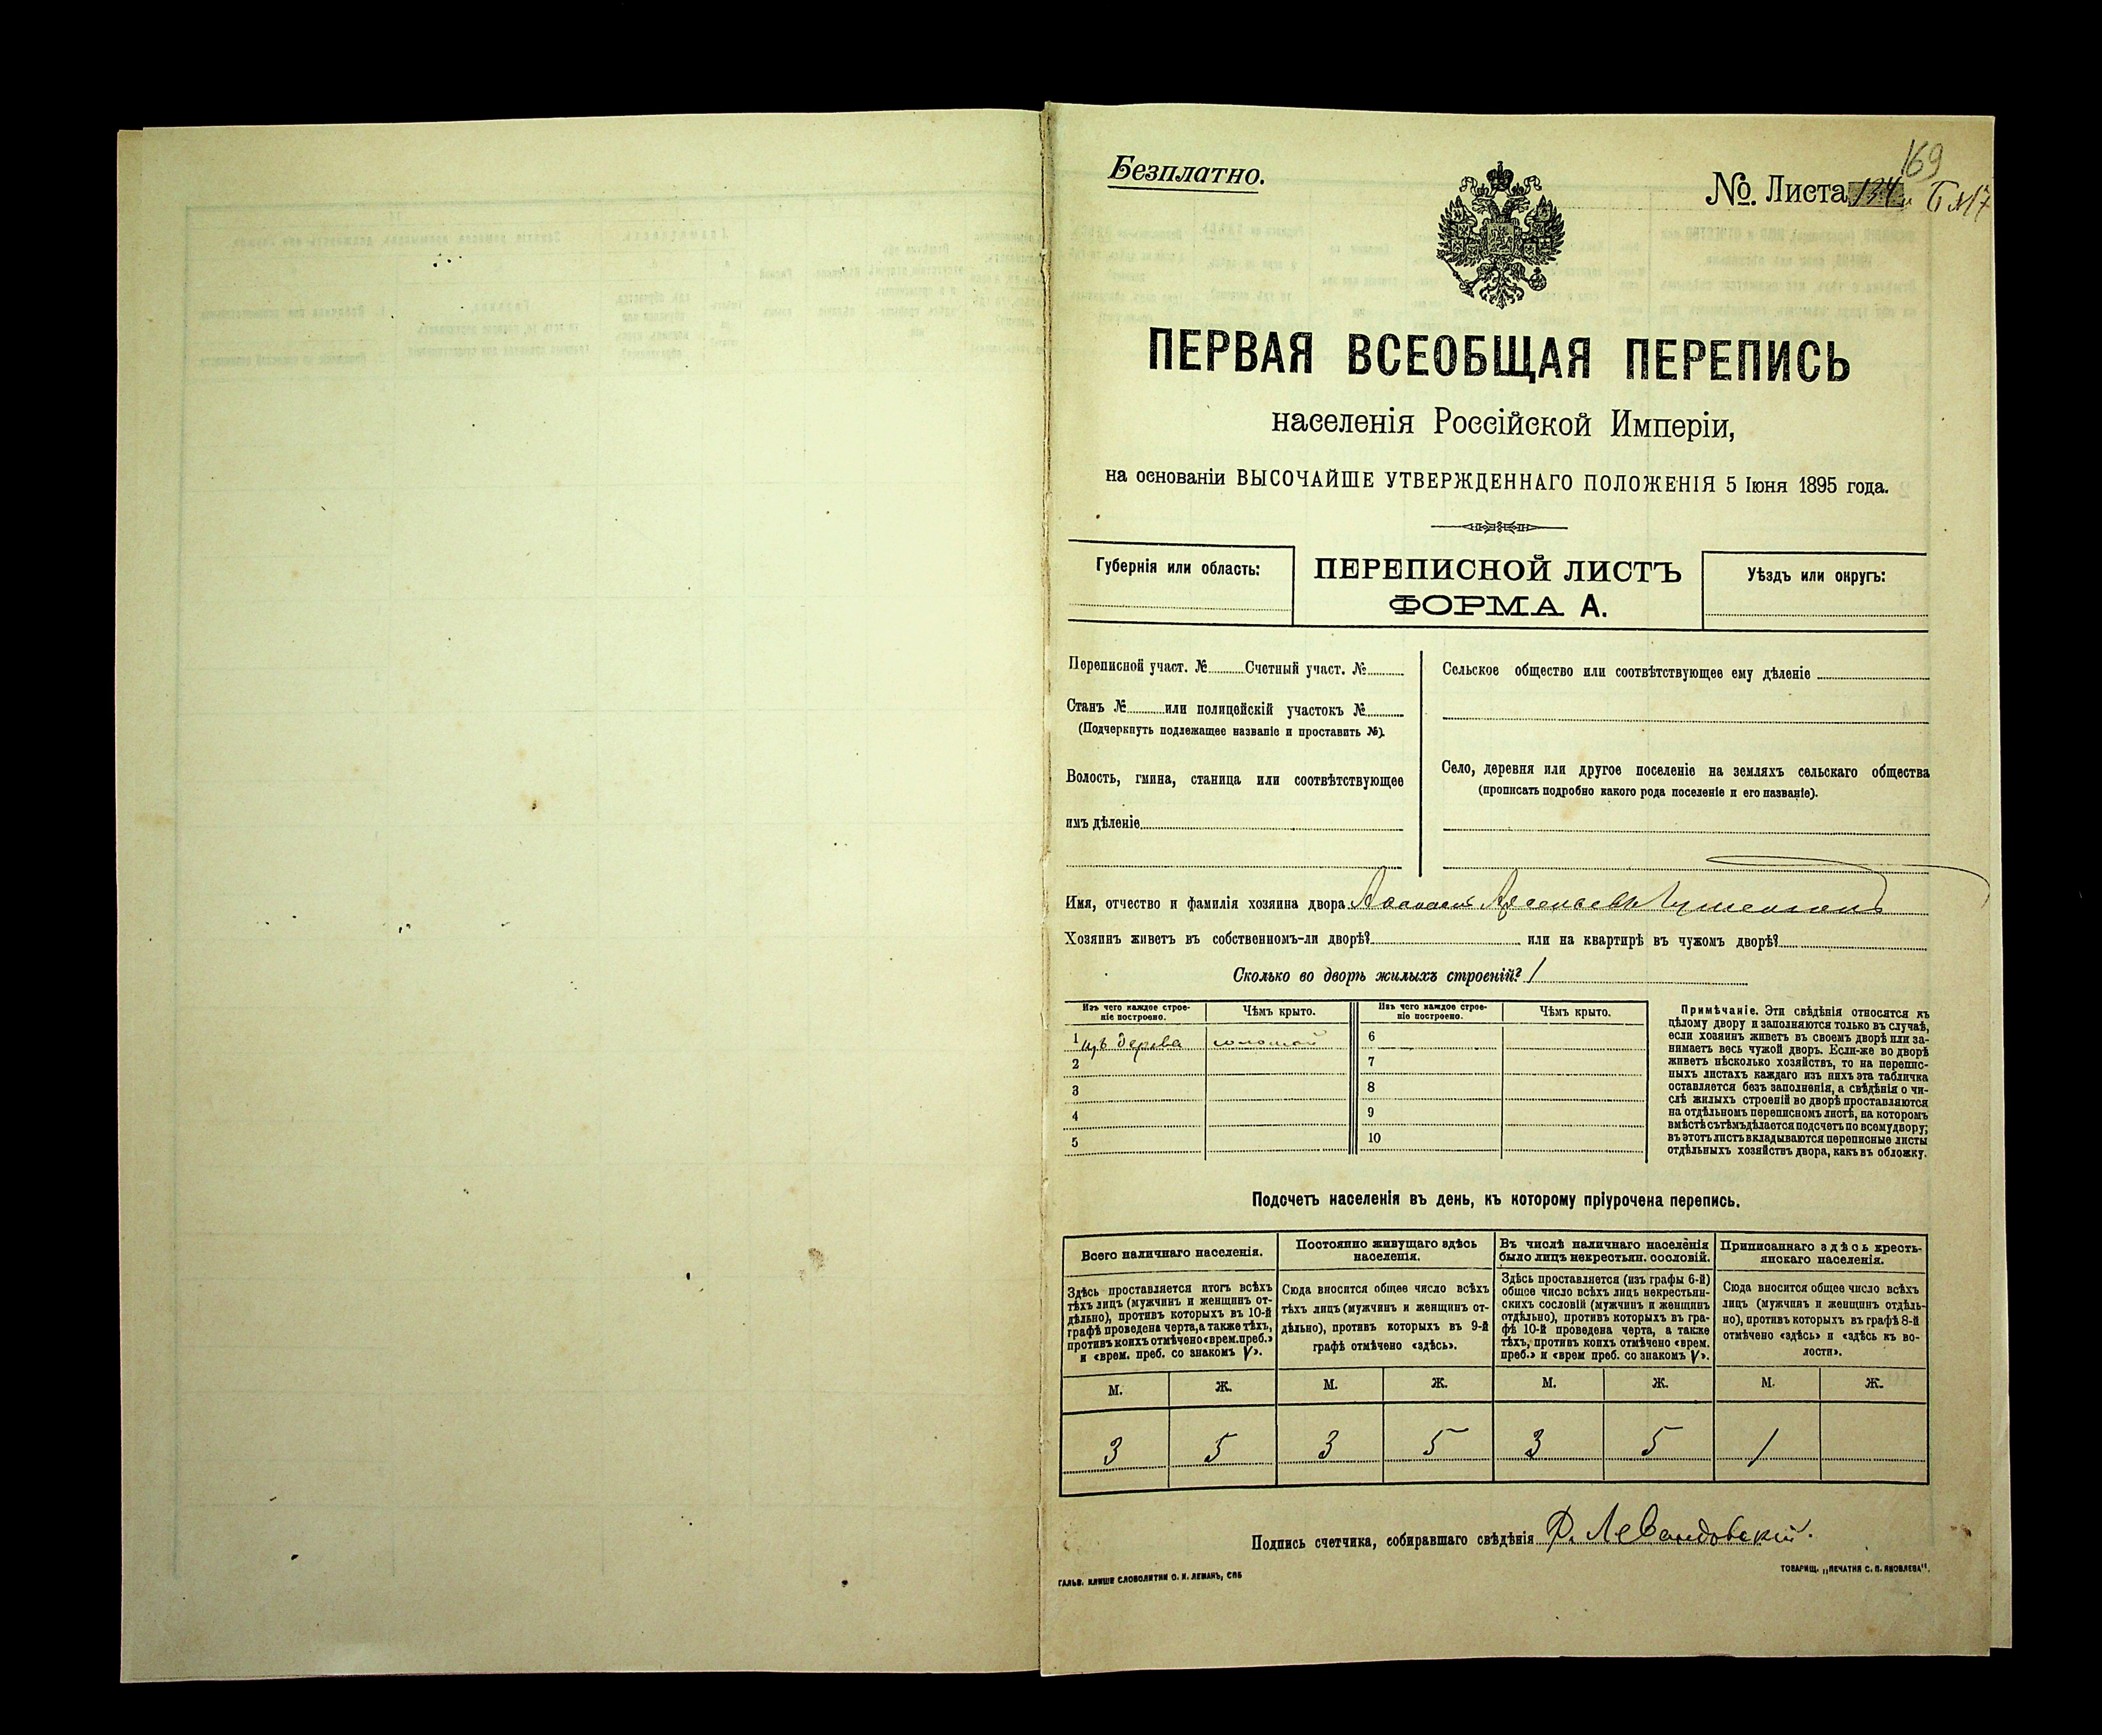 169
Безплатно.
№. Листа 134 Б №17
ПЕРВАЯ ВСЕОБЩАЯ ПЕРЕПИСЬ
населенія Россійской Имперіи,
на основаніи ВЫСОЧАЙШЕ УТВЕРЖДЕННАГО ПОЛОЖЕНІЯ 5 Іюня 1895 года.
Губернія или область:
ПЕРЕПИСНОЙ ЛИСТЪ
ФОРМА А.
Уѣздъ или округъ:
Переписной участ. № Счетный участ. №
Станъ № или полицейскій участокъ №
(Подчеркнуть подлежащее названіе и проставить №).
Волость, гмина, станица или соотвѣтствующее
имъ дѣленіе
Сельское общество или соотвѣтствующее ему дѣленіе
Село, деревня или другое поселеніе на земляхъ сельскаго общества
(прописать подробно какого рода поселеніе и его названіе).
Имя, отчество и фамилія хозяина двора
Хозяинъ живетъ въ собственномъ-ли дворѣ? или на квартирѣ въ чужомъ дворѣ?
Сколько во дворѣ жилыхъ строеній? 1
Изъ чего каждое строе-
ніе построено.
Чѣмъ крыто.
Изъ чего каждое строе-
ніе построено.
Чѣмъ крыто.
1 изъ дерева соломой 6
2 7
3 8
4 9
5 10
Примѣчаніе. Эти свѣдѣнія относятся къ
цѣлому двору и заполняются только въ случаѣ,
если хозяинъ живетъ въ своемъ дворѣ или за-
нимаетъ весь чужой дворъ. Если-же во дворѣ
живетъ нѣсколько хозяйствъ, то на перепис-
ныхъ листахъ каждаго изъ нихъ эта табличка
оставляется безъ заполненія, а свѣдѣнія о чи-
слѣ жилыхъ строеній во дворѣ проставляются
на отдѣльномъ переписномъ листѣ, на которомъ
вмѣстѣ съ тѣмъ дѣлается подсчетъ по всему двору;
въ этотъ листъ вкладываются переписные листы
отдѣльныхъ хозяйствъ двора, какъ въ обложку.
Подсчетъ населенія въ день, къ которому пріурочена перепись.
Всего наличнаго населенія.
Здѣсь проставляется итогъ всѣхъ
тѣхъ лицъ (мужчинъ и женщинъ от-
дѣльно), противъ которыхъ въ 10-й
графѣ проведена черта, а также тѣхъ,
противъ коихъ отмѣчено «врем. преб.»
и «врем. преб. со знакомъ V».
Постоянно живущаго здѣсь
населенія.
Сюда вносится общее число всѣхъ
тѣхъ лицъ (мужчинъ и женщинъ от-
дѣльно), противъ которыхъ въ 9-й
графѣ отмѣчено «здѣсь».
Въ числѣ наличнаго населенія
было лицъ некрестьян. сословій.
Здѣсь проставляется (изъ графы 6-й)
общее число всѣхъ лицъ некрестьян-
скихъ сословій (мужчинъ и женщинъ
отдѣльно), противъ которыхъ въ гра-
фѣ 10-й проведена черта, а также
тѣхъ, противъ коихъ отмѣчено «врем.
преб.» и «врем преб. со знакомъ V».
Приписаннаго здѣсь кресть-
янскаго населенія.
Сюда вносится общее число всѣхъ
лицъ (мужчинъ и женщинъ отдѣль-
но), противъ которыхъ въ графѣ 8-й
отмѣчено «здѣсь» и «здѣсь къ во-
лости».
М. Ж. М. Ж. М. Ж. М. Ж.
3 5 3 5 3 5 1
Подпись счетчика, собиравшаго свѣдѣнія Левандовскій.
ГАЛЬВ. КЛИШЕ СЛОВОЛИТНИ О. И. ЛЕМАНЪ, СПБ
ТОВАРИЩ. „ПЕЧАТНЯ С. П. ЯКОВЛЕВА".